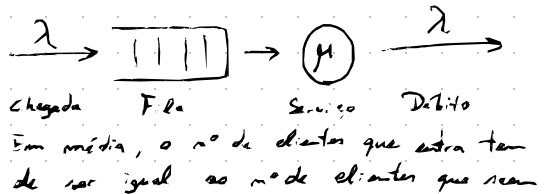 λ λ
μ
Chegada Fila Serviço Débito
Em média, o nº de clientes que entra tem
de ser igual ao nº de clientes que saem